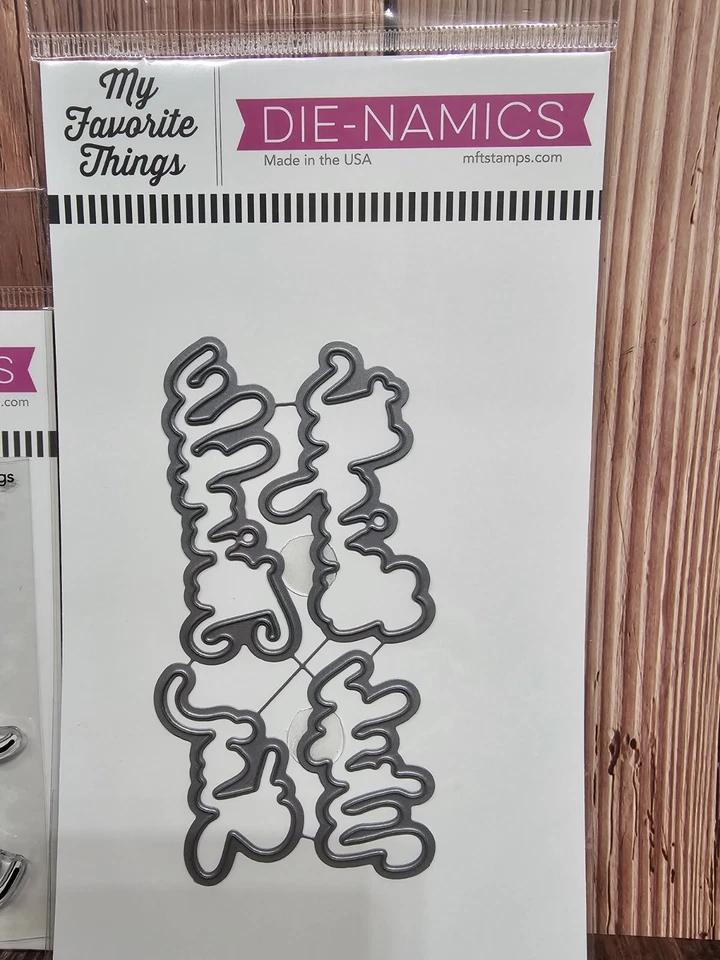 My
Favorite
Things
DIE-NAMICS
Made in the USA
mftstamps.com
S
.com
gs